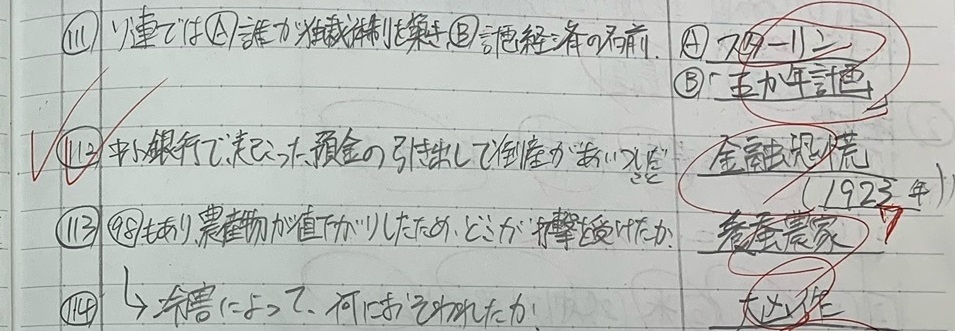 (111) ソ連ではⒶ誰が独裁体制を築き、Ⓑ計画経済の名前. Ⓐスターリン
Ⓑ「五か年計画」
(112) 中小銀行で起こった、預金の引き出しで倒産があいついだこと 金融恐慌
(1923年)
(113) (98)もあり、農産物が値下がりしたため、どこが打撃を受けたか. 養蚕農家
(114) ↳ 冷害によって、何におそわれたか. 大凶作